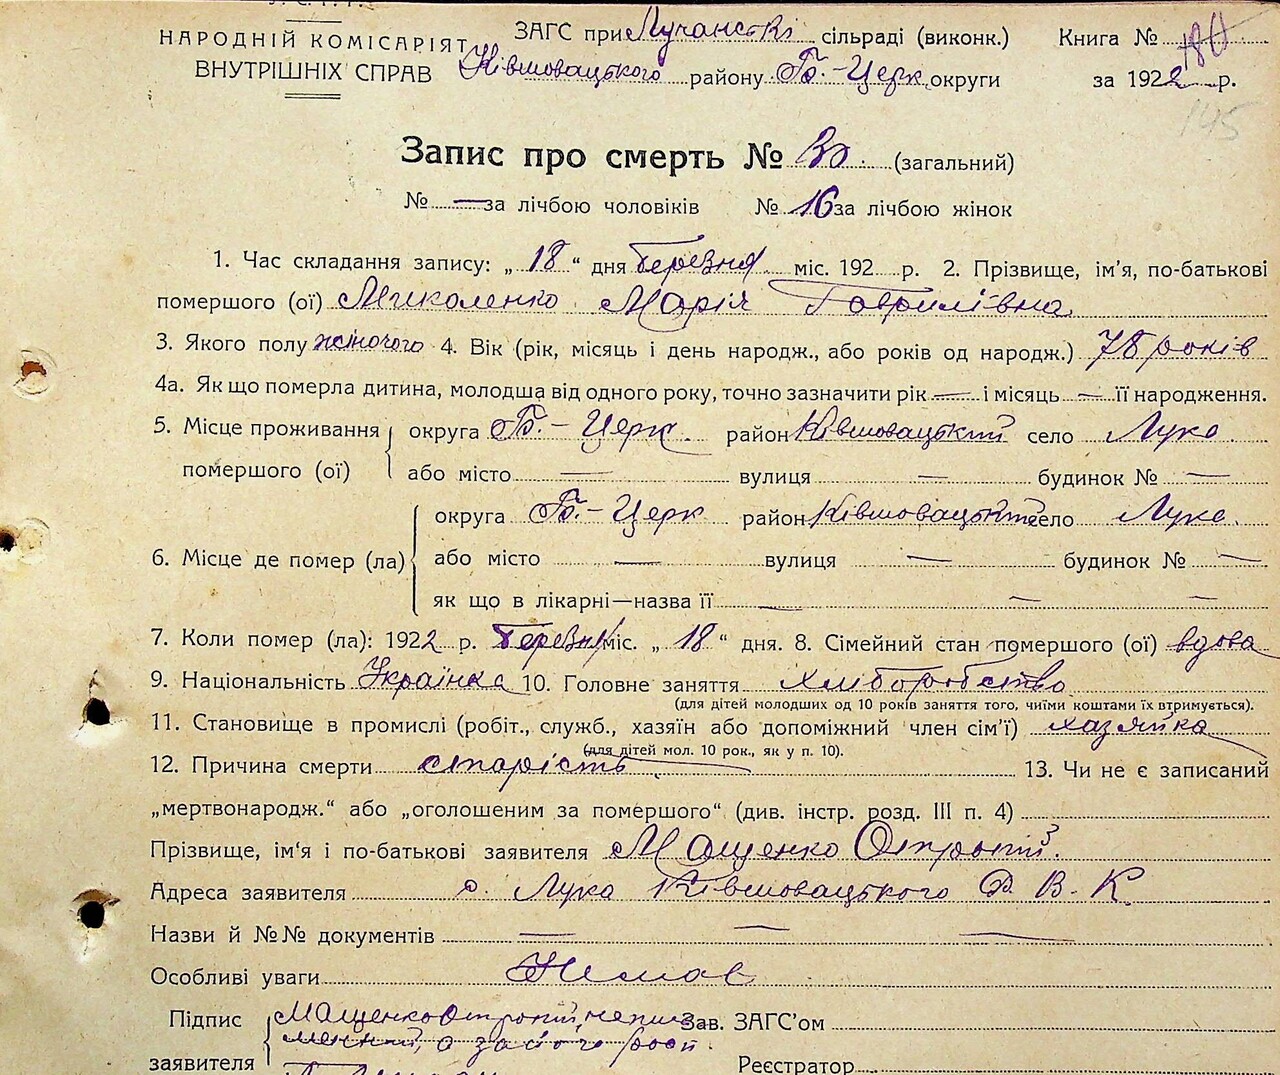 НАРОДНІЙ КОМІСАРІЯТ ЗАГС при Лучанські сільраді (виконк.) Книга № 180
ВНУТРІШНІХ СПРАВ Ківшовацького району Б.-Церк. округи за 1922 р.
145
Запис про смерть № (загальний)
№ — за лічбою чоловіків № 16 за лічбою жінок
1. Час складання запису: „ 18 “ дня Березня міс. 192 р. 2. Прізвище, ім’я, по-батькові
помершого (ої) Миколенко Марія Гаврилівна
3. Якого полу жіночого 4. Вік (рік, місяць і день народж., або років од народж.) 78 років
4а. Як що померла дитина, молодша від одного року, точно зазначити рік — і місяць — її народження.
5. Місце проживання округа Б.-Церк. район Ківшовацький село Лука
помершого (ої) або місто — вулиця — будинок № —
округа Б.-Церк район Ківшовацький село Лука
6. Місце де помер (ла) або місто — вулиця — будинок № —
як що в лікарні—назва її — — —
7. Коли помер (ла): 1922 р. Березня міс. „ 18 “ дня. 8. Сімейний стан помершого (ої) вдова
9. Національність Українка 10. Головне заняття Хліборобство
(для дітей молодших од 10 років заняття того, чиїми коштами їх втримується).
11. Становище в промислі (робіт., служб., хазяїн або допоміжний член сім’ї) хазяйка
(для дітей мол. 10 рок., як у п. 10).
12. Причина смерти старість 13. Чи не є записаний
„мертвонародж.“ або „оголошеним за помершого“ (див. інстр. розд. III п. 4)
Прізвище, ім’я і по-батькові заявителя Мащенко
Адреса заявителя с. Лука Ківшовацького Р. В. К.
Назви й №№ документів — — —
Особливі уваги Немає
Підпис Мащенко непись Зав. ЗАГС’ом
менний, а за його
заявителя Реєстратор